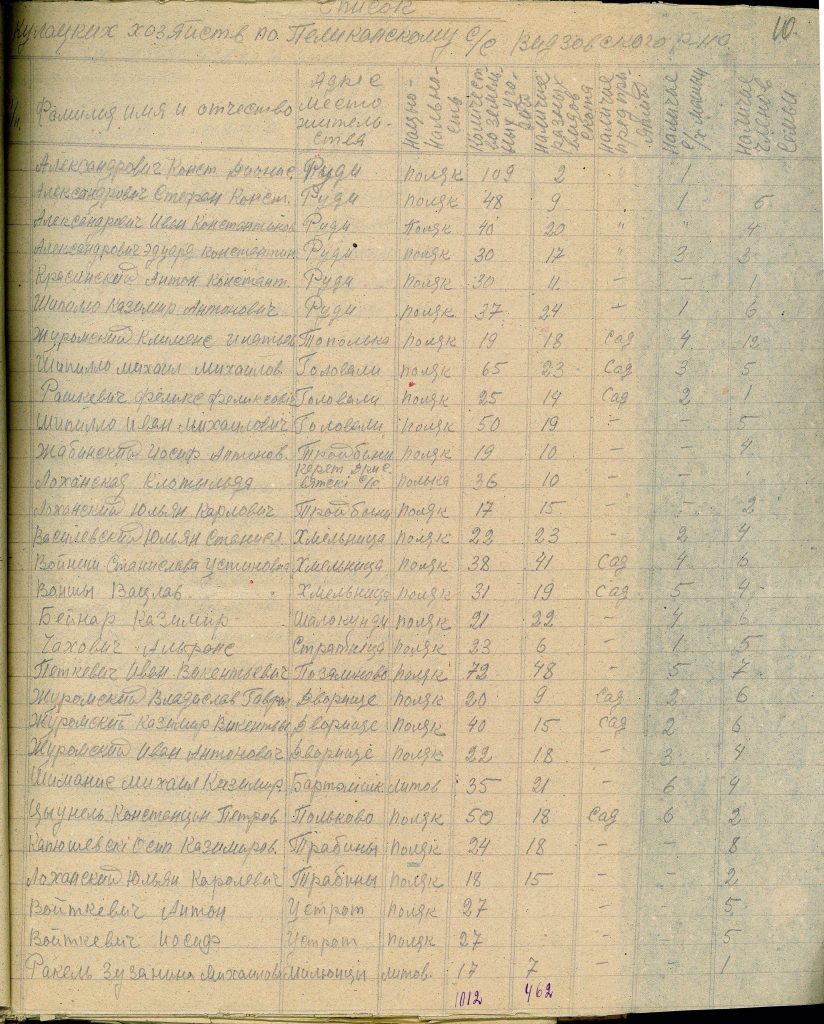 Список
Кулацких хозяйств по Пеликанскому с/с Видзовского р-на. 10.
Фамилия имя и отчество Адрес место жительства Национальность Количест. земельных угодий Наличие разных видов скота Наличие Наличие с/х машин Наличие членов семьи
Александрович Конст. Руди поляк 109 2 " 1
Александрович Стефан Конст. Руди поляк 48 9 " 1 6
Александрович Иван Константинов Руди поляк 40 20 " " 4
Александрович Эдуард Константин Руди поляк 30 17 " 3 3
Красинский Антон Констант. Руди поляк 30 11 - - 1
Шипилло Казимир Антонович Руди поляк 37 24 - 1 6
Журомский Клименс Игнатьев Тополька поляк 19 18 Сад 4 12
Шипилло Михаил Михаилов. Головали поляк 65 23 Сад 3 5
Рашкевич Феликс Феликсов Головали поляк 25 14 Сад 2 1
Шипилло Иван Михаилович Головали поляк 50 19 - - 5
Жабинский Иосиф Антонов. поляк 19 10 - - 4
Лоханская Клотыльда с/с полька 36 10 - -
Лоханский Юльян Карлович поляк 17 15 - - 2
Василевский Юльян Станисл. Хмельница поляк 22 23 - 2 4
Войнии Станислава Устиновна Хмельница поляк 38 41 Сад 4 6
Вонты Вацлав Хмельница поляк 31 19 Сад 5 4
Бейнар Казимир Шалокунди поляк 21 22 - 4 6
Чахович Альфонс поляк 23 6 - 1 5
Петкевич Иван Викентьевич поляк 72 48 - 5 7
Журомский Владислав Дворище поляк 20 9 Сад 2 6
Журомский Казимир Викентьев Дворище поляк 40 15 Сад 2 6
Журомский Иван Антонович Дворище поляк 22 18 - 3 4
Шиманис Михаил Казимир литов 35 21 - 6 4
Цыунель Констанцин Петров Польково поляк 50 18 Сад 6 2
Капюшевскі Осип Казимиров. Трабины поляк 24 18 - - 8
Лоханский Юльян Каролевич Трабины поляк 18 15 - - 2
Войткевич Антон Устрот поляк 27 - - 5
Войткевич Иосиф Устрот поляк 27 - - 5
Ракель Зузанина Михайлова Милюнцы литов. 17 7 - - 1
1012 462